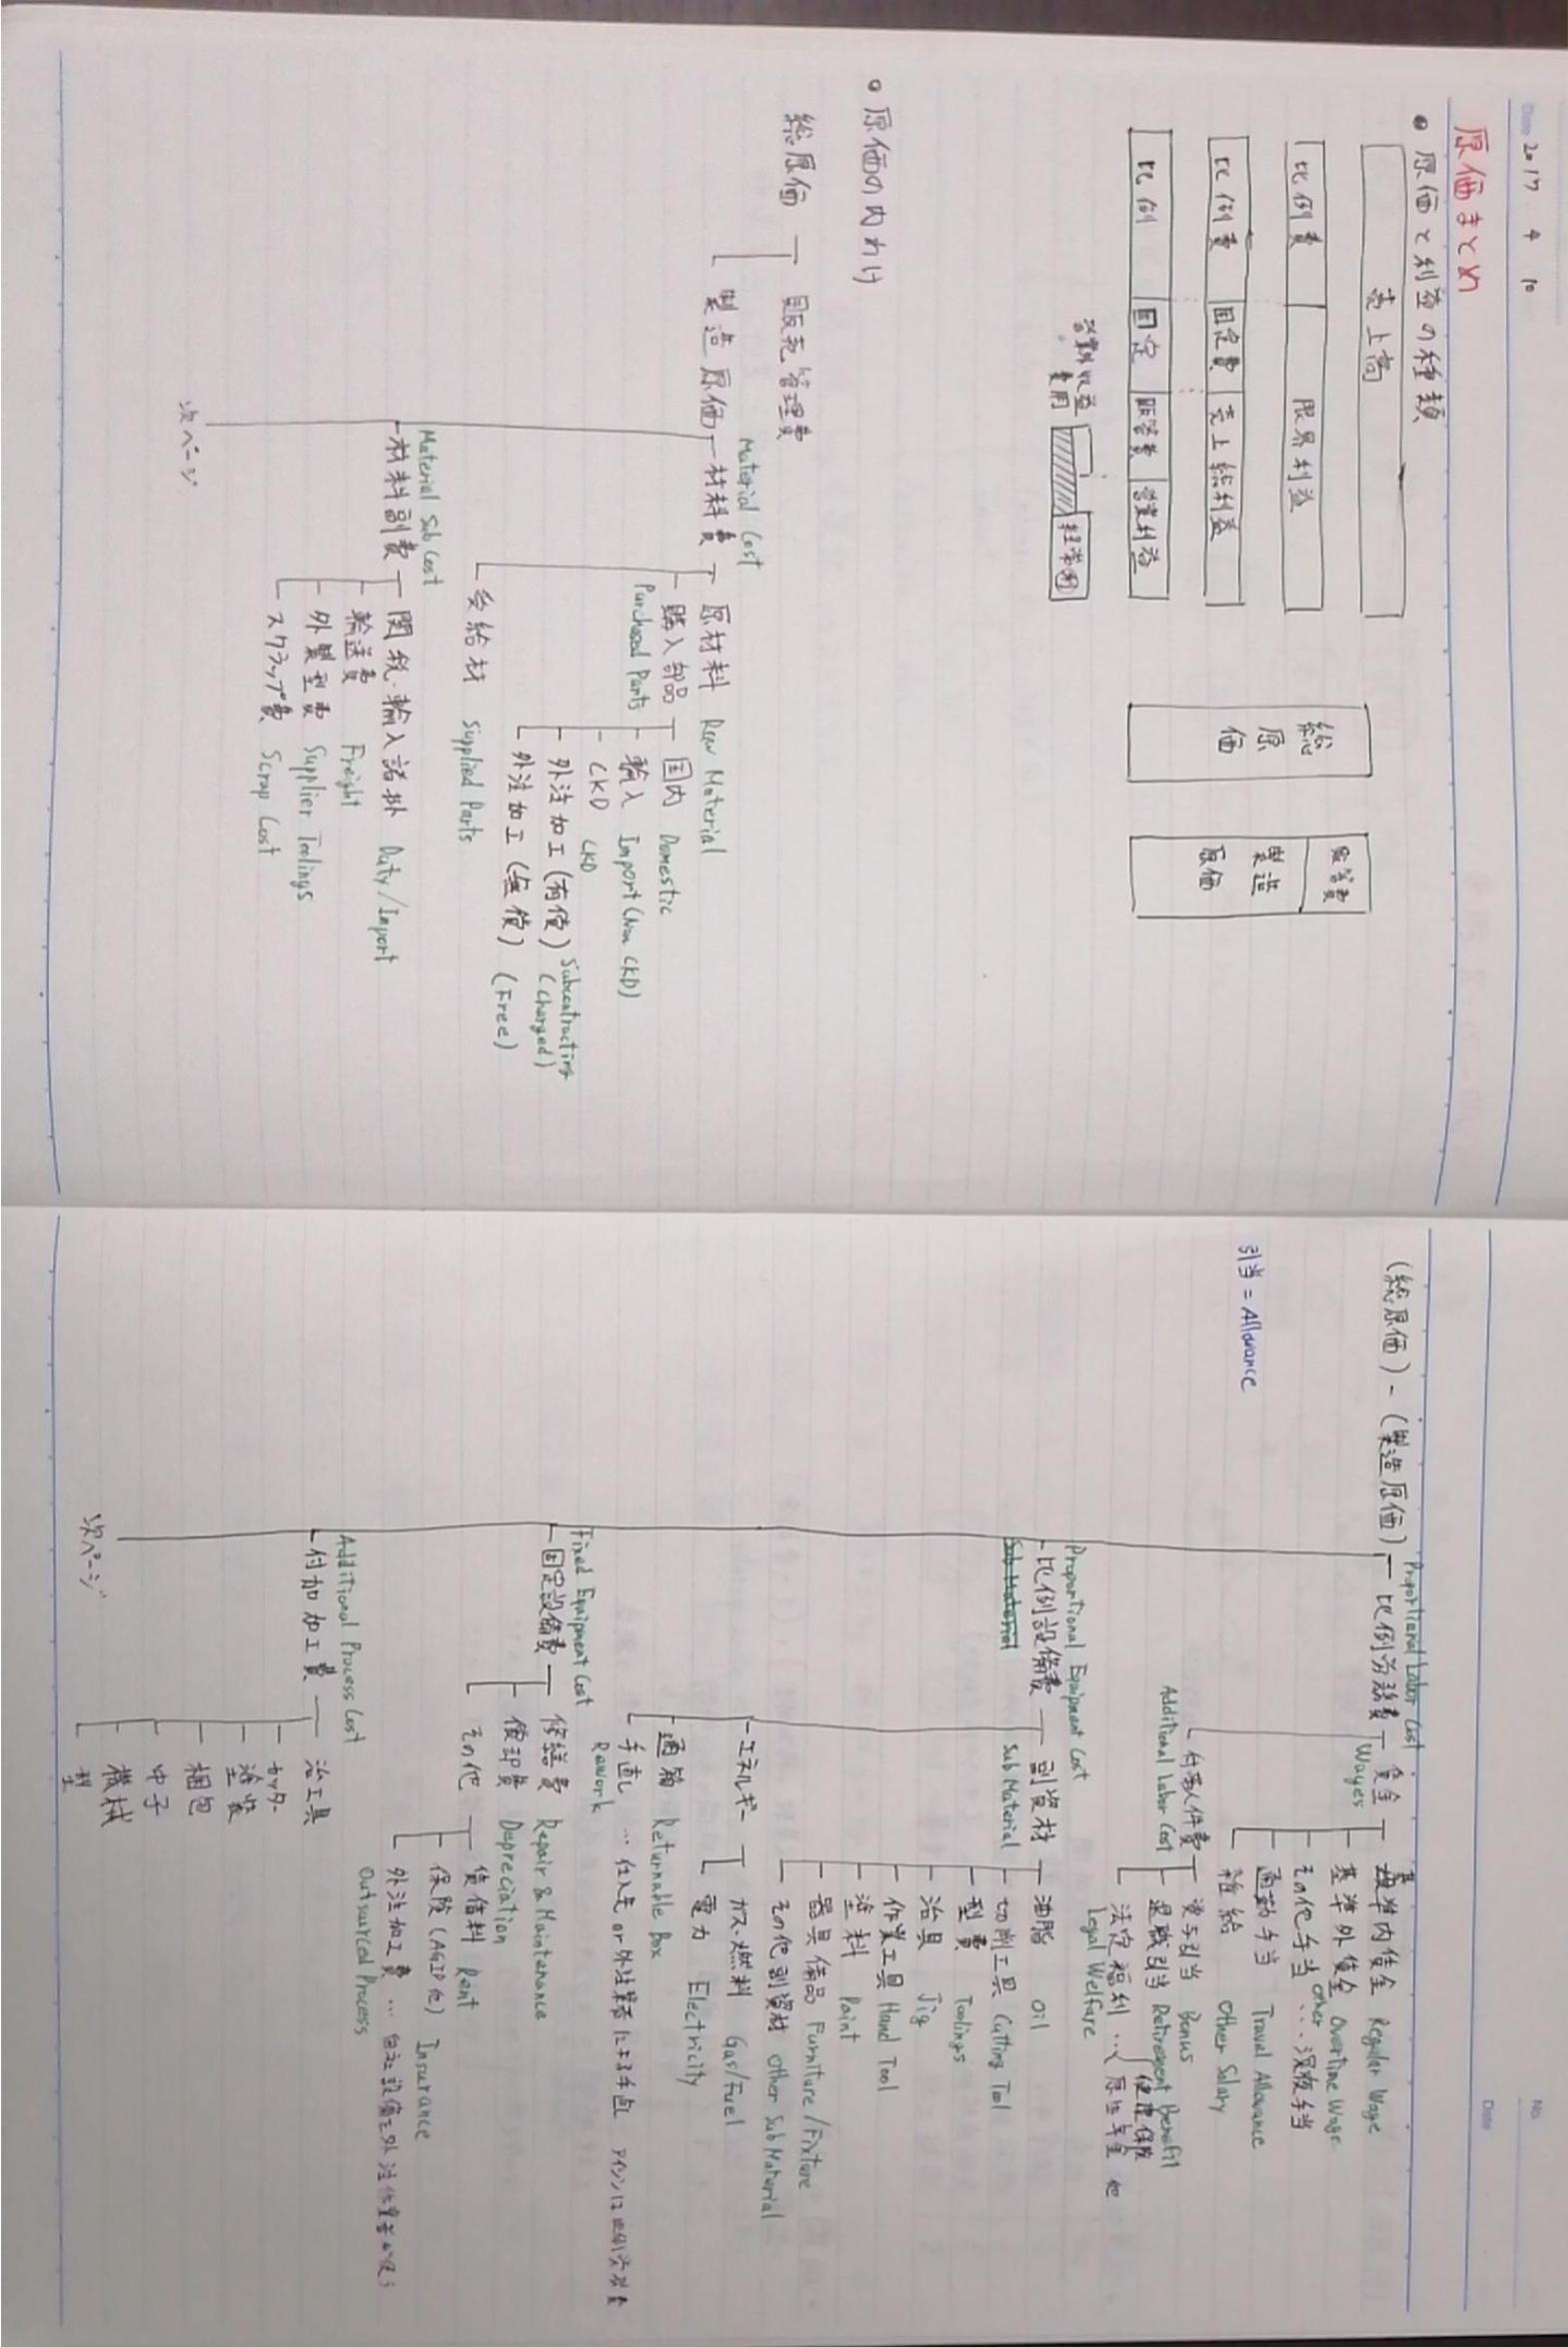 Date 2017 4 10
原価まとめ
● 原価と利益の種類
売上高
比例費 限界利益
比例費 固定費 売上総利益
比例 固定 販管費 営業利益
営業外収益
費用
経常利
総原価
販管費
製造原価
● 原価の内わけ
総原価 販売管理費
製造原価
Material Cost
材料費
原材料 Raw Material
購入部品
Purchased Parts
国内 Domestic
輸入 Import (Non CKD)
CKD CKD
外注加工(有償) Subcontracting (Charged)
外注加工(無償) (Free)
支給材 Supplied Parts
Material Sub Cost
材料副費
関税・輸入諸掛 Duty/Import
輸送費 Freight
外製型費 Supplier Toolings
スクラップ費 Scrap Cost
次ページ
No.
Date
(総原価) - (製造原価)
引当 = Allowance
Proportional Labor Cost
比例労務費
賃金
Wages
基準内賃金 Regular Wage
基準外賃金 Overtime Wage
その他手当 Other ... 深夜手当
通勤手当 Travel Allowance
雑給 Other Salary
付帯人件費
Additional Labor Cost
賞与引当 Bonus
退職引当 Retirement Benefit
法定福利 ... 健康保険
厚生年金 他
Legal Welfare
Proportional Equipment Cost
比例設備費
Sub Material
副資材
Sub Material
油脂 Oil
切削工具 Cutting Tool
型費 Toolings
治具 Jig
作業工具 Hand Tool
塗料 Paint
器具備品 Furniture/Fixture
その他副資材 Other Sub Material
エネルギー
ガス・燃料 Gas/Fuel
電力 Electricity
通箱 Returnable Box
手直し ... 仕入先 or 外注業者による手直し
Rework
Fixed Equipment Cost
固定設備費
修繕費 Repair & Maintenance
償却費 Depreciation
その他
賃借料 Rent
保険(AGIP他) Insurance
外注加工費 ... 自社設備を外注作業者が使う
Outsourced Process
Additional Process Cost
付加加工費
治工具
カッター
塗装
梱包
中子
機械
型
次ページ